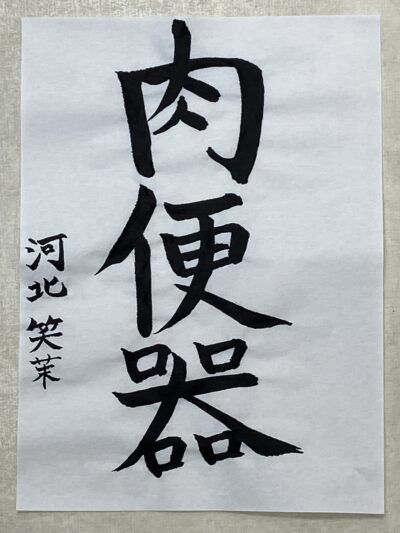 肉便器
河北笑茉